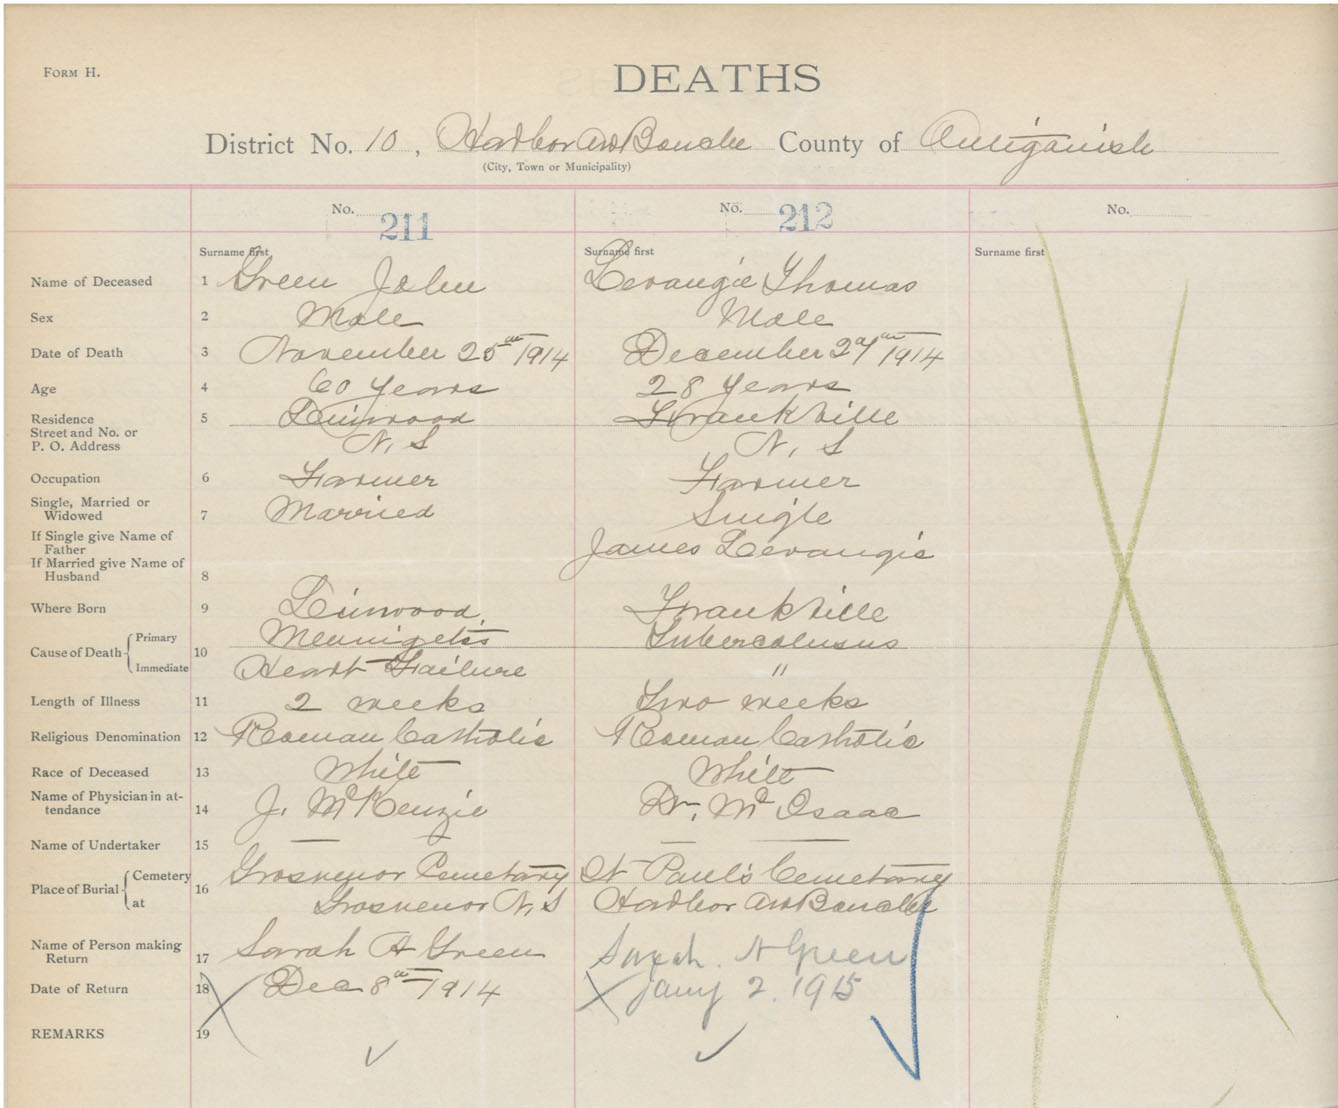 FORM H.
DEATHS
District No. 10, Harbor Au Bouche County of Antigonish
(City, Town or Municipality)
No. 211 No. 212 No.
Surname first Surname first Surname first
Name of Deceased 1 Green John Levangie Thomas
Sex 2 Male Male
Date of Death 3 November 25th 1914 December 29th 1914
Age 4 60 Years 28 Years
Residence 5 Linwood Frankville
Street and No. or
P. O. Address N. S N. S
Occupation 6 Farmer Farmer
Single, Married or
Widowed 7 Married Single
If Single give Name of
Father James Levangie
If Married give Name of
Husband 8
Where Born 9 Linwood Frankville
Cause of Death Primary 10 Meningetis Tubercolusus
Immediate Heart Failure "
Length of Illness 11 2 weeks Two weeks
Religious Denomination 12 Roman Catholic Roman Catholic
Race of Deceased 13 White White
Name of Physician in at-
tendance 14 J. McKenzie Dr. Mc Isaac
Name of Undertaker 15 — —
Place of Burial Cemetery 16 Grosvenor Cemetary St Paul's Cemetary
at Grosvenor N, S Harbor Au Bouche
Name of Person making
Return 17 Sarah A Green Sarah. A Green
Date of Return 18 Dec 8th 1914 Jany 2. 1915
REMARKS 19